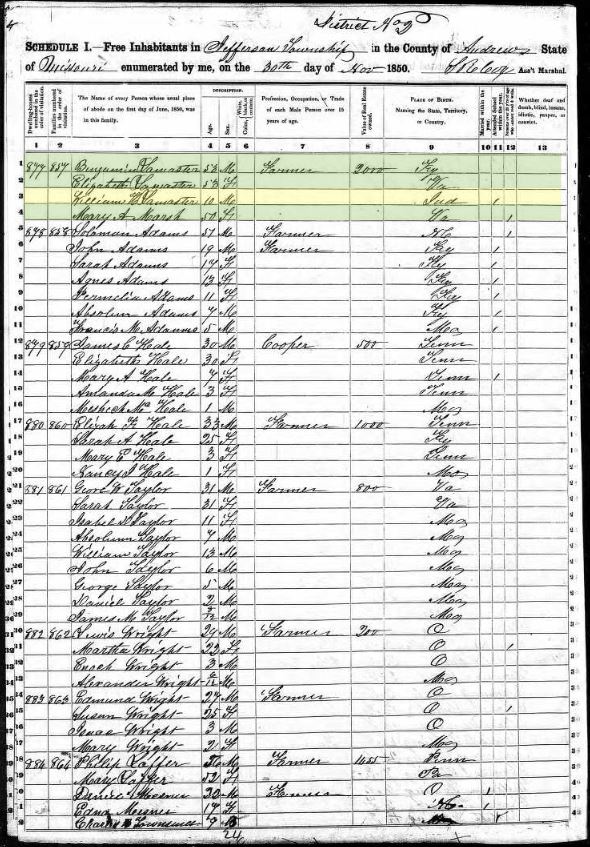 District No 2
SCHEDULE I.—Free Inhabitants in Jefferson Township in the County of Andrew State
of Missouri enumerated by me, on the 30th day of Nov 1850. Ass't Marshal.
DESCRIPTION.
Dwelling-houses numbered in the order of visitation. Families numbered in the order of visitation. The Name of every Person whose usual place of abode on the first day of June, 1850, was in this family. Age. Sex. Profession, Occupation, or Trade of each Male Person over 15 years of age. Value of Real Estate owned. PLACE OF BIRTH. Naming the State, Territory, or Country. Married within the year. Whether deaf and dumb, blind, insane, idiotic, pauper, or convict.
1 2 3 4 5 6 7 8 9 10 11 12 13
1 877 857 Benjamin Lamaster 53 M Farmer 2000 Ky
2 Elizabeth Lamaster 53 F Va
3 William Lamaster 10 M Ind 1
4 Mary A Marsh 50 F Va 1
5 878 858 Soloman Adams 51 M Farmer NC 1
6 John Adams 19 M Farmer Ky 1
7 Sarah Adams 17 F Ky 1
8 Agnes Adams 13 F Ky 1
9 Permelia Adams 11 F Ky 1
10 Absolum Adams 7 M Ky 1
11 Francis M Adams 5 M Mo 1
12 879 859 James C Hale 30 M Cooper 500 Tenn
13 Elizabeth Hale 30 F Tenn
14 Mary A Hale 7 F Tenn 1
15 Amanda M Hale 3 F Tenn
16 Hale 1 M Mo
17 880 860 Elijah Hale 33 M Farmer 1000 Tenn
18 Sarah A Hale 25 F Ky
19 Mary E Hale 3 F Tenn
20 Nancy J Hale 1 F Mo
21 881 861 Geore W Taylor 31 M Farmer 800 Va
22 Sarah Taylor 31 F Va
23 Isabel Taylor 11 F Mo
24 Absolum Taylor 7 M Mo
25 William Taylor 13 M Mo
26 John Taylor 6 M Mo
27 George Taylor 5 M Mo
28 Daniel Taylor 2 M Mo
29 James M Taylor M Mo
30 882 862 Lewis Wright 29 M Farmer 200 O
Martha Wright 22 F O 1
Enoch Wright 3 M O
Alexander Wright M Mo
883 863 Edmund Wright 27 M Farmer O
Susan Wright 25 F O 1
Isaac Wright 3 M O
Mary Wright 2 F Mo
884 864 Philip Laffer 56 M Farmer 1655 Penn
Mary Laffer 52 F Pa
Daniel Mesner 22 M Farmer O 1
Edna Mesner 17 F 1
Townsend 7
24